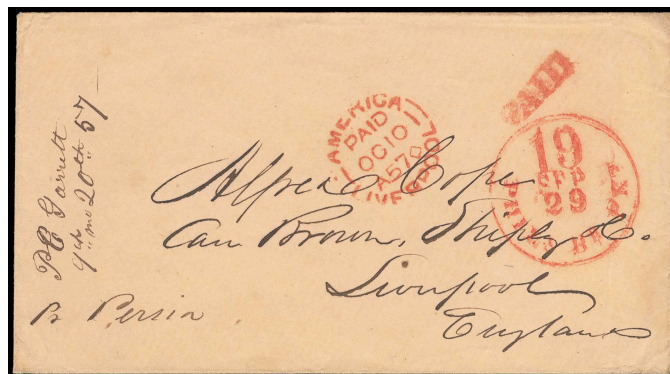 P C Garrett
9th mo 20th 57
PAID
AMERICA
PAID
OC 10
A57
LIVERPOOL
19
SEP
29
Alfred Cope
Care Brown, Shipley & Co.
Liverpool
England
Pr Persia